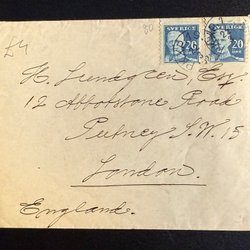 £4
80
SVERIGE SVERIGE
20 20
ÖRE ÖRE
H. Lundgren, Esq.
12 Abbotstone Road
Putney S.W. 15
London.
England.